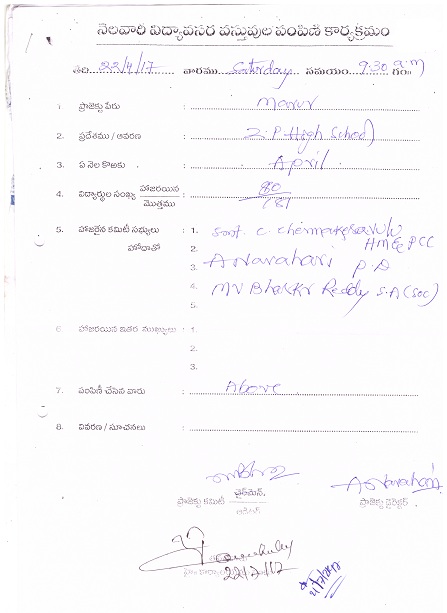 నెలవారి విద్యావసర వస్తువుల పంపిణి కార్యక్రమం
తేది 22/4/17 వారము Saturday సమయం 9.30 am గం॥
1. ప్రాజెక్టు పేరు : Marur
2. ప్రదేశము / ఆవరణ : Z.P High School
3. ఏ నెల కొఱకు : April
4. విద్యార్థుల సంఖ్య హాజరయిన : 80
మొత్తము 181
5. హాజరైన కమిటీ సభ్యులు : 1. Smt. C. Chennakesavulu
హోదాతో 2. HM & PCC
3. A Narahari P.D
4. MV Bhaskar Reddy S.A (Soc)
5.
6. హాజరయిన ఇతర ముఖ్యులు : 1.
2.
3.
7. పంపిణీ చేసిన వారు : Above
8. వివరణ / సూచనలు :
ప్రాజెక్టు కమిటీ ఛైర్మెన్
ఆడిటర్
A Narahari
ప్రాజెక్టు డైరెక్టర్